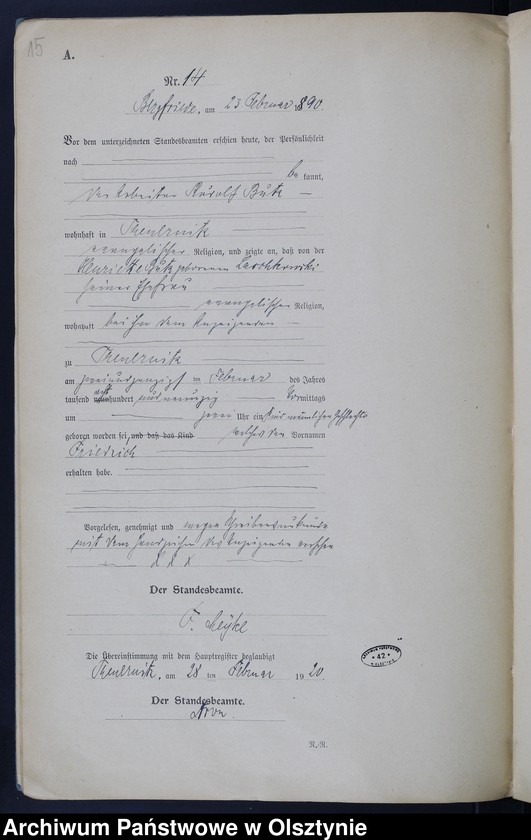 15
A.
Nr. 14
Bergfriede, am 23 Februar 1890.
Vor dem unterzeichneten Standesbeamten erschien heute, der Persönlichkeit
nach
be kannt,
der Arbeiter Rudolf
wohnhaft in Theuernitz
evangelischer Religion, und zeigte an, daß von der
geborenen
seiner Ehefrau
evangelischer Religion,
wohnhaft bei ihm dem Anzeigenden
zu Theuernitz
am zweiundzwanzigsten Februar des Jahres
tausend acht hundert und neunzig Vormittags
um zwei Uhr ein Kind männlichen Geschlechts
geboren worden sei, und daß das Kind welches den Vornamen
Friedrich
erhalten habe.
Vorgelesen, genehmigt und wegen Schreibensunkunde
mit dem Handzeichen des Anzeigenden versehen
x x x
Der Standesbeamte.
F.
Die Übereinstimmung mit dem Hauptregister beglaubigt
Theuernitz, am 28 ten Februar 1920.
Der Standesbeamte.
R./R.
42
Archiwum Państwowe w Olsztynie